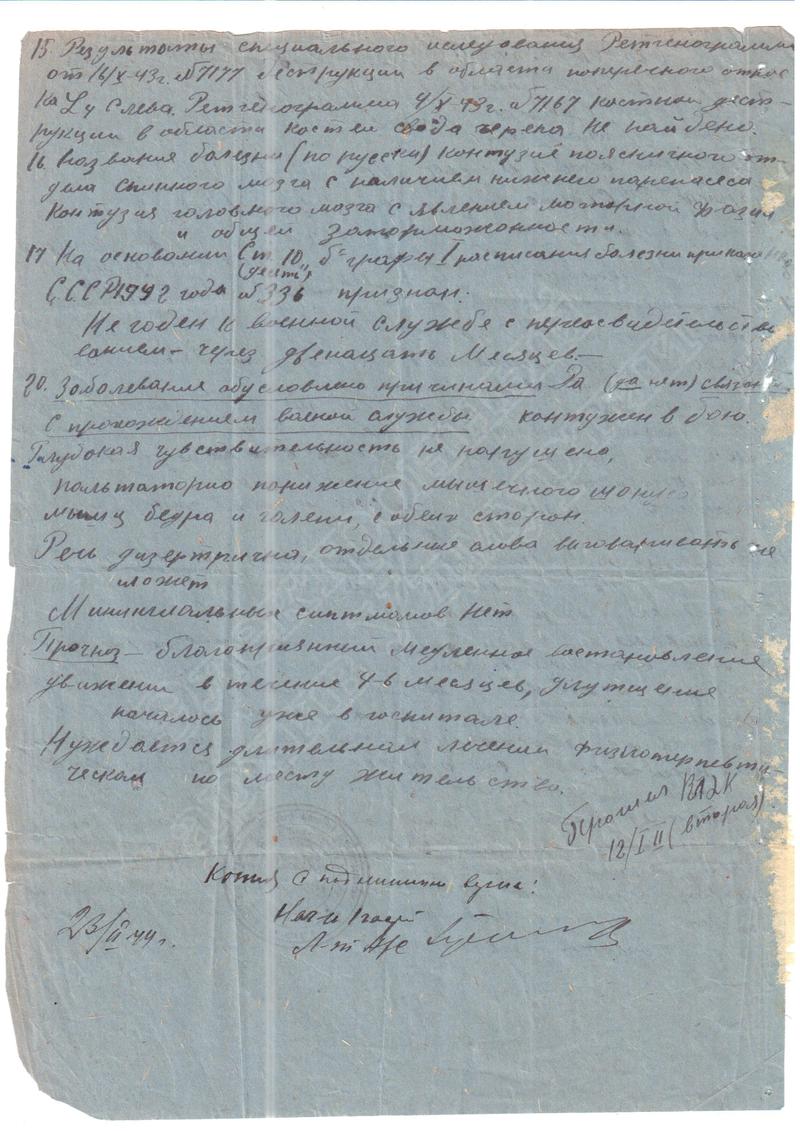 15. Результаты специального иследования Ретгенограмма
от 16/X-43г. №7177 деструкции в области поперечного отрос
ка L4 слева. Ретгенограмма 4/X-43г. №7167 костной дест-
рукции в области костей свода черепа не найдено.
16. Название болезни (по русски) контузия поясничного от-
дела спинного мозга с наличием нижнего
Контузия головного мозга с явлением моторной
и общей заторможонности.
17 На основании Ст. 10 "б" графы I росписания болезни приказа НКО
(десять)
СССР 1942 года №336 признан.
Не годен к военной службе с переосвидетельство
ванием - через двенацать месяцев. -
20. Заболевание обусловлено причинами Ра (да нет) связан
с прохождением военой службы контужен в бою.
Глубокая чувствительность не нарушена,
пальпаторно понижение мышечного тонуса
мышц бедра и голени, с обеих сторон.
Речь дизертрична, отдельные слова виговаривать не
может
Минингиальных симтмомов нет
Прогноз - благоприятний медленное востановление
движений в течение 4-6 месяцев, улутшение
началось уже в госпитале.
Нуждается длительном лечении физиотерпевти-
ческом по месту жительство.
ВТЭК
12/III (вторая)
Копия с подлинным верна:
23/II 44г.
Нач-к
Л-т А/С